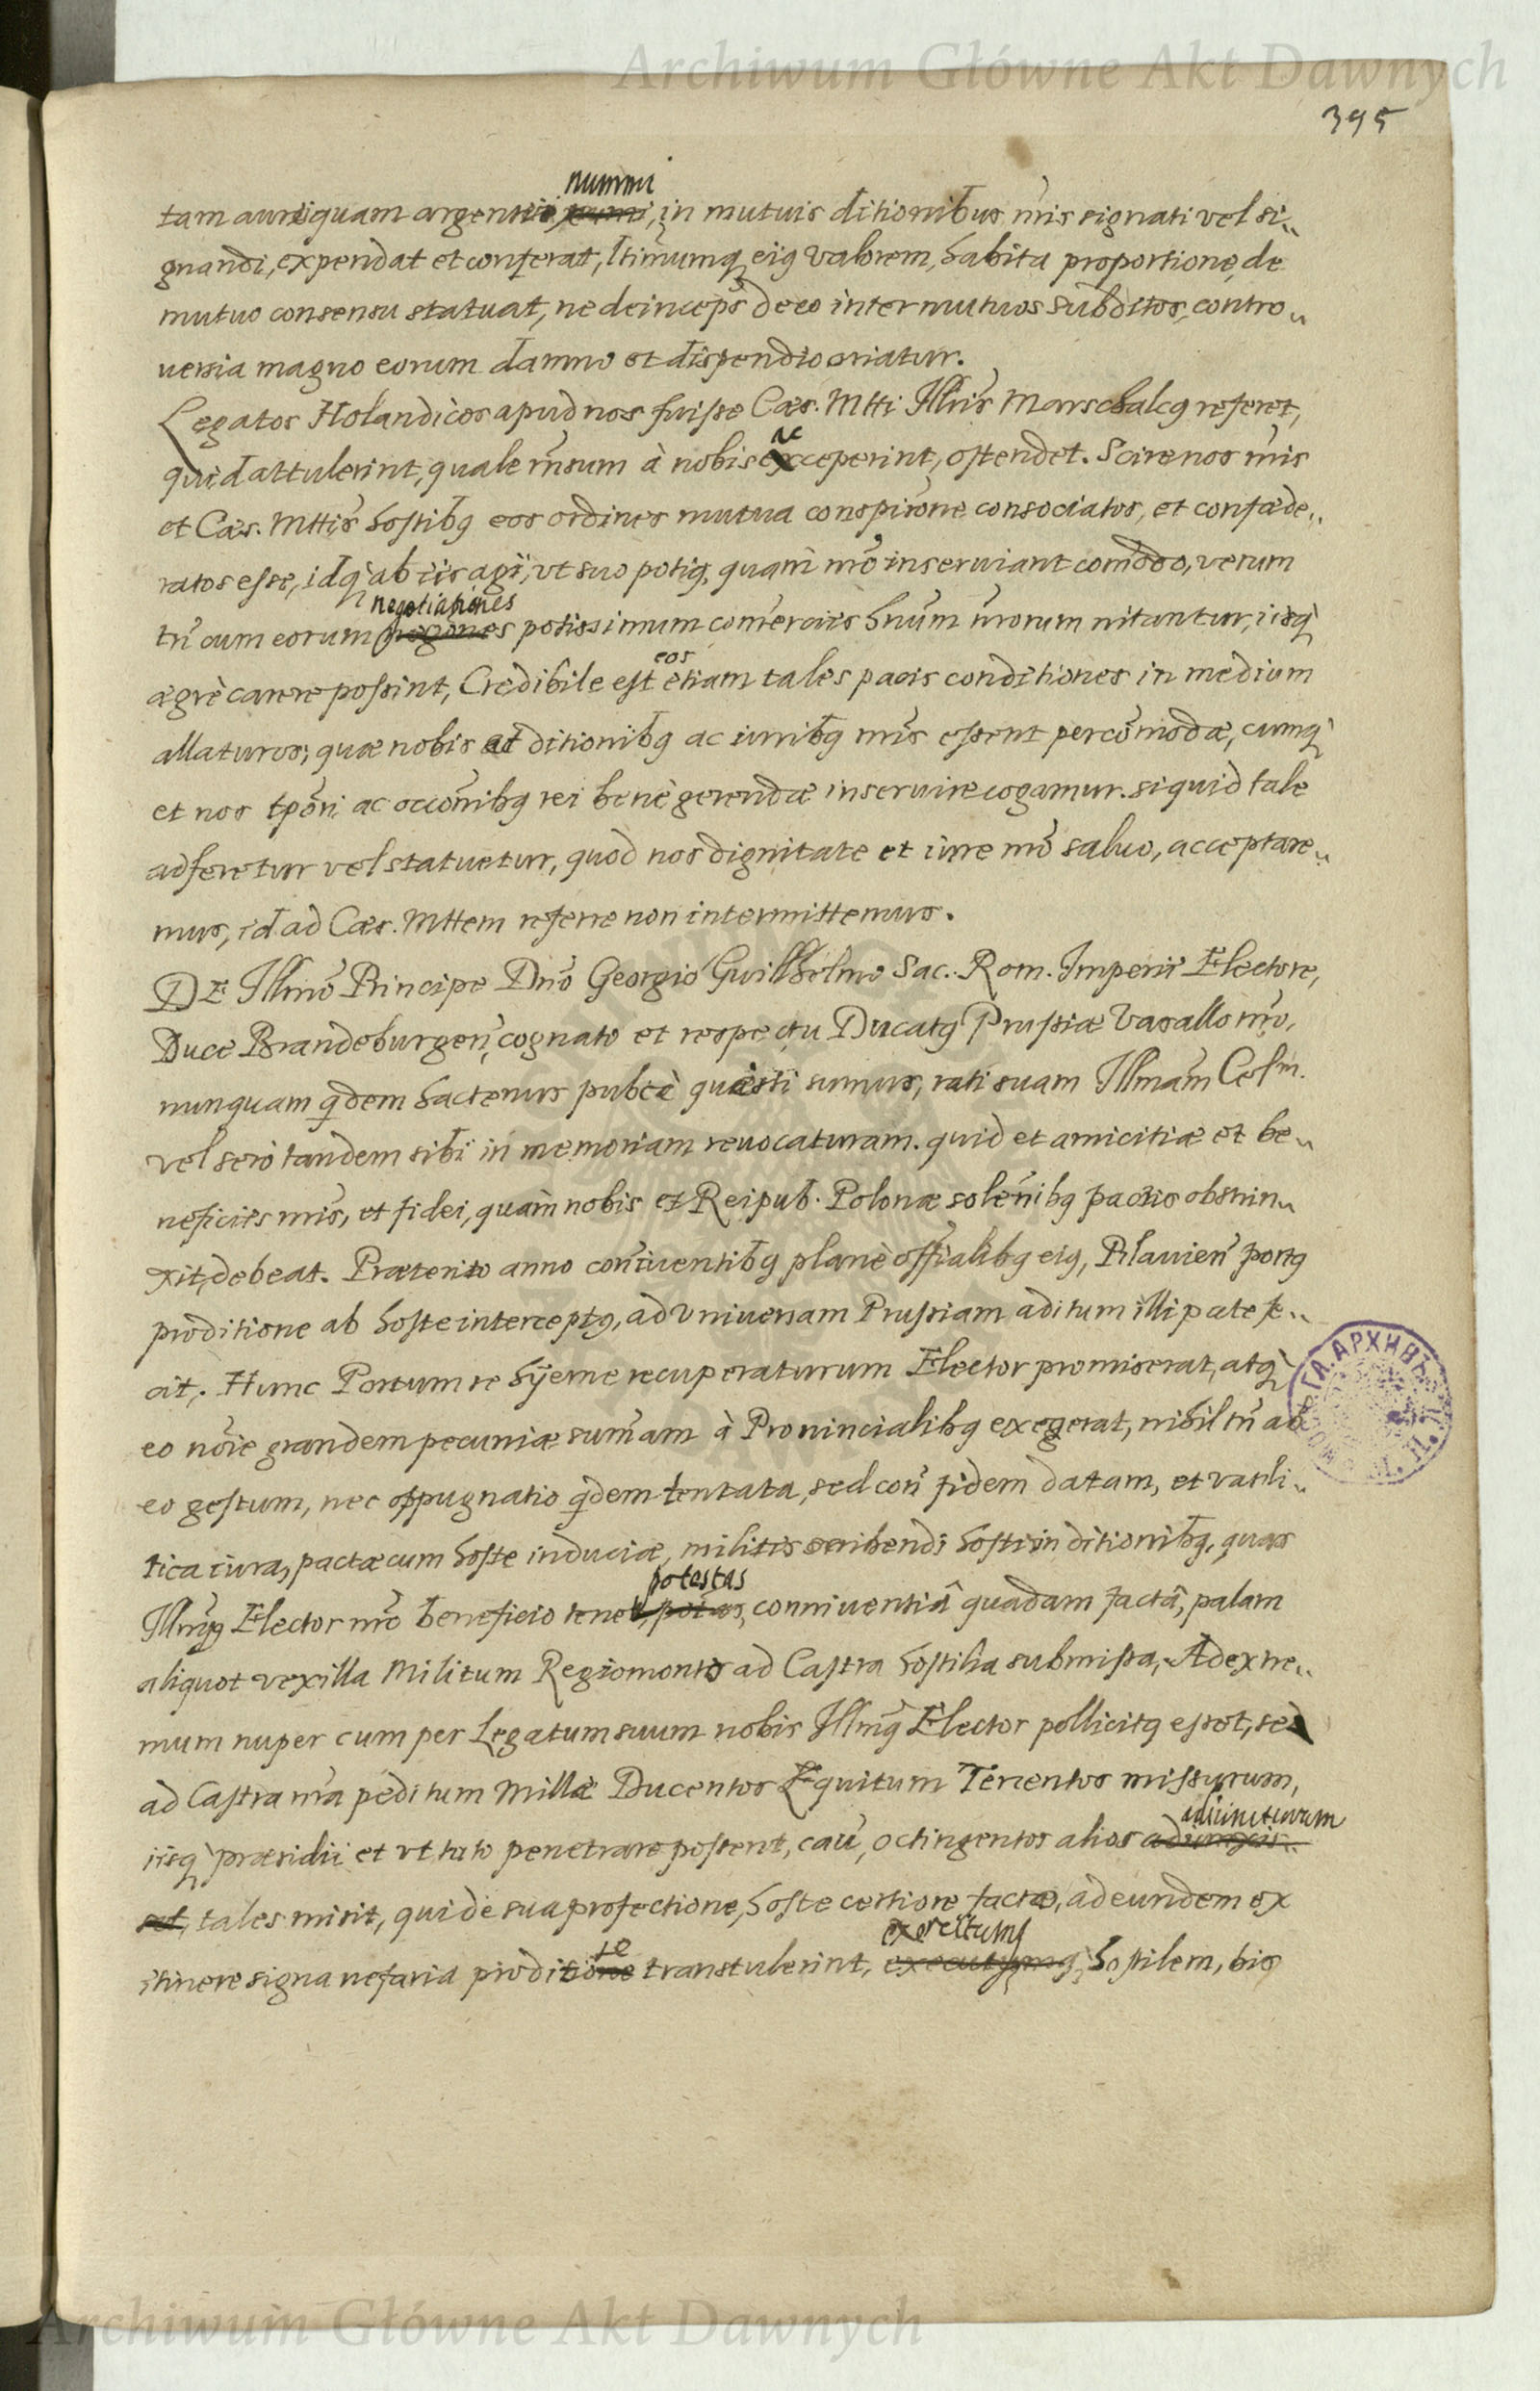 Archiwum Główne Akt Dawnych
395
nummi
tam auri quam argentei, in mutuis ditionibus nris signati vel si„
gnandi, expendat et conferat, ltimumq eig valorem, habita proportione, de
mutuo consensu statuat, ne deinceps de eo inter mutuos subditos, contro„
uersia magno eorum damno et dispendio oriatur.
Legatos Holandicos apud nos fuisse Caes. Mtti Illris Marschalcg referet,
ac
quid attulerint, quale rnsum à nobis exceperint, ostendet. Scire nos nris
et Caes. Mttis hostibg eos ordines mutua conspirone consociatos, et confaede„
ratos esse, idq ab iis agi, vt suo potig, quam nro inseruiant comodo, verum
negotiationes
tn cum eorum negones potissimum comerciis hnum nrorum nitantur, iisq
eos
aegrè carere possint, Credibile est etiam tales pacis conditiones in medium
allaturos, quae nobis ac ditionibg ac iuribg nris essent percomodae, cumq
et nos tpori ac occonibg rei benè gerendae inseruire cogamur. si quid tale
adferetur vel statuetur, quod nos dignitate et iure nro saluo, acceptare„
mus, id ad Caes. Mttem referre non intermittemus.
DE Illmo Principe Dno Georgio Guilhelmo Sac. Rom. Imperii Electore,
Duce Brandeburgen, cognato et respectu Ducatg Prussiae Vasallo nro,
nunquam qdem hactenus pubcè quaesti sumus, rati suam Illmam Celsm.
vel serò tandem sibi in memoriam reuocaturam. quid et amicitiae et be„
neficiis nris, et fidei, quam nobis et Reipub. Polonae solenibg pactis obstrin„
xit, debeat. Praeterito anno coniuentibg planè offialibg eig, Pilauien portg
proditione ab hoste interceptg, ad vniuersam Prussiam aditum illi patefe„
cit. Hunc Portum se hyeme recuperaturum Elector promiserat, atq
eo noie grandem pecuniae sumam à Prouincialibg exegerat, nihil tn ab
eo gestum, nec oppugnatio qdem tentata, sed con fidem datam, et vasali„
tica iura, pactae cum hoste induciae, militis scribendi hosti in ditionibg, quas
potestas
Illmg Elector nro beneficio tenet, potas, conniuentiâ quadam factâ, palam
aliquot vexilla Militum Regiomonto ad Castra hostilia submissa, Ad extre„
mum nuper cum per Legatum suum nobis Illmg Elector pollicitg esset, se
ad Castra nra peditum Mille Ducentos Equitum Trecentos missurum,
adiuncturum
iisq praesidii et vt tuto penetrare possent, cau, octingentos alios adiunxis„
set, tales misit, qui de sua profectione, hoste certiore facto, ad eundem ex
se exercitumq
itinere signa nefaria proditione transtulerint, hostilem, bis
ГЛ. АРХИВЪ
Archiwum Główne Akt Dawnych